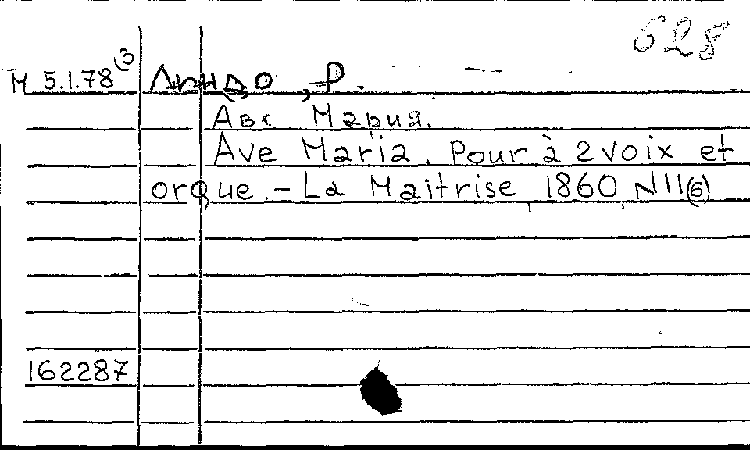 628
М 5.1.78 (3) Линдо, Р.
Аве Мария.
Ave Maria. Pour à 2 voix et
orque. - La Maitrise, 1860, N11(6)
162287